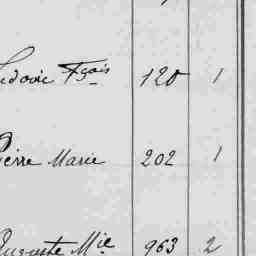 Ludovic Fçois 120 1
Pierre Marie 202 1
Auguste Mie 963 2